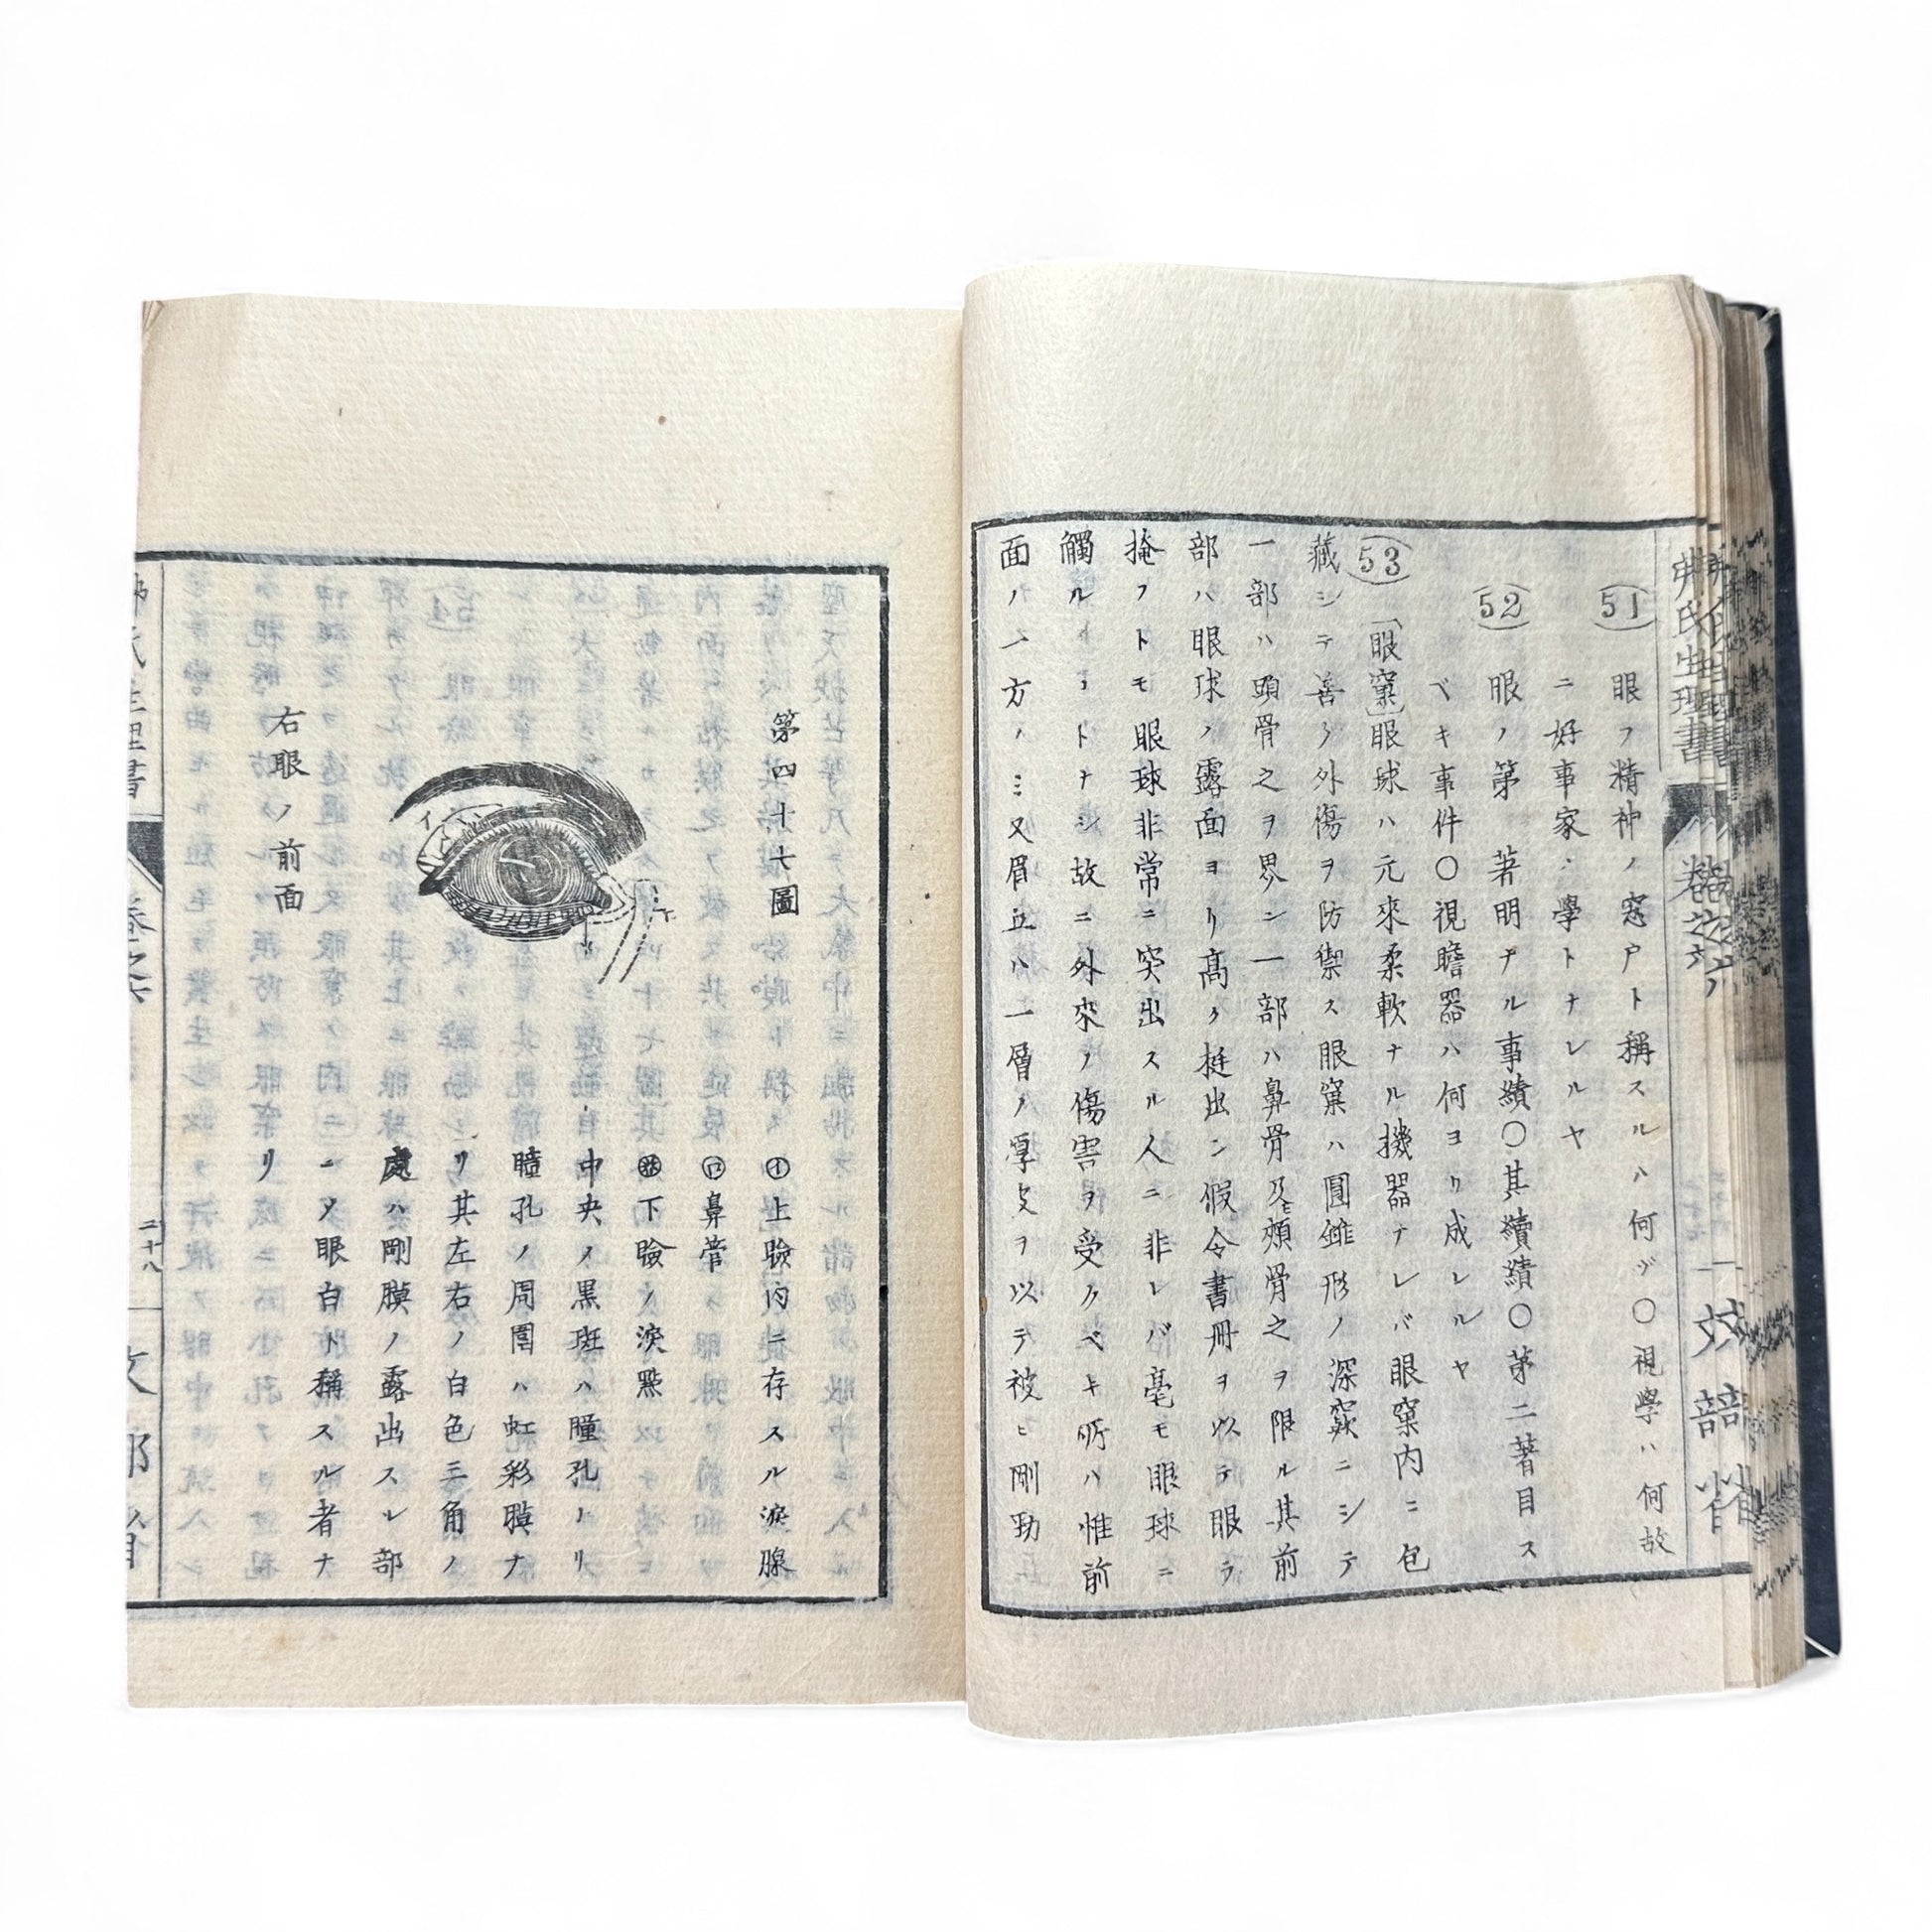 51
眼ヲ精神ノ窓戸ト稱スルハ何ゾ〇視學ハ何故
ニ好事家ノ學トナレルヤ
52
眼ノ第一著明ナル事績〇其續績〇第二著目ス
ベキ事件〇視瞻器ハ何ヨリ成レルヤ
53
「眼窠」眼球ハ元來柔軟ナル機器ナレバ眼窠内ニ包
藏シテ善ク外傷ヲ防禦ス眼窠ハ圓錐形ノ深窾ニシテ
一部ハ頭骨之ヲ界シ一部ハ鼻骨及ヒ頰骨之ヲ限ル其前
部ハ眼球ノ露面ヨリ高ク挺出シ假令書冊ヲ以テ眼ヲ
掩フトモ眼球非常ニ突出スル人ニ非レバ毫モ眼球ニ
觸ルヽコトナシ故ニ外來ノ傷害ヲ受クベキ所ハ惟前
面ノ一方ノミ又眉丘ハ一層ノ厚皮ヲ以テ被ヒ剛勁
第四十七圖
右眼ノ前面
㋑上瞼内ニ存スル淚腺
㋺鼻管
下瞼ノ淚點
中央ノ黒斑ハ瞳孔ナリ
瞳孔ノ周圍ハ虹彩膜ナ
リ其左右ノ白色三角ノ
處ハ剛膜ノ露出スル部
ニメ眼白ト稱スル者ナ
リ
卷之六
二十八
文部省